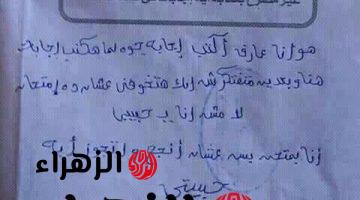 هو انا عارف أكتب إجابة جوه لما هكتب إجابة
هنا وبعدين متفتكرش إنك هتخوفنى عشان ده إمتحان
لا مش أنا يا حبيبى
أنا بمتحن بس عشان أنجح و اتجوز أية
حبيبتى
الزهراء